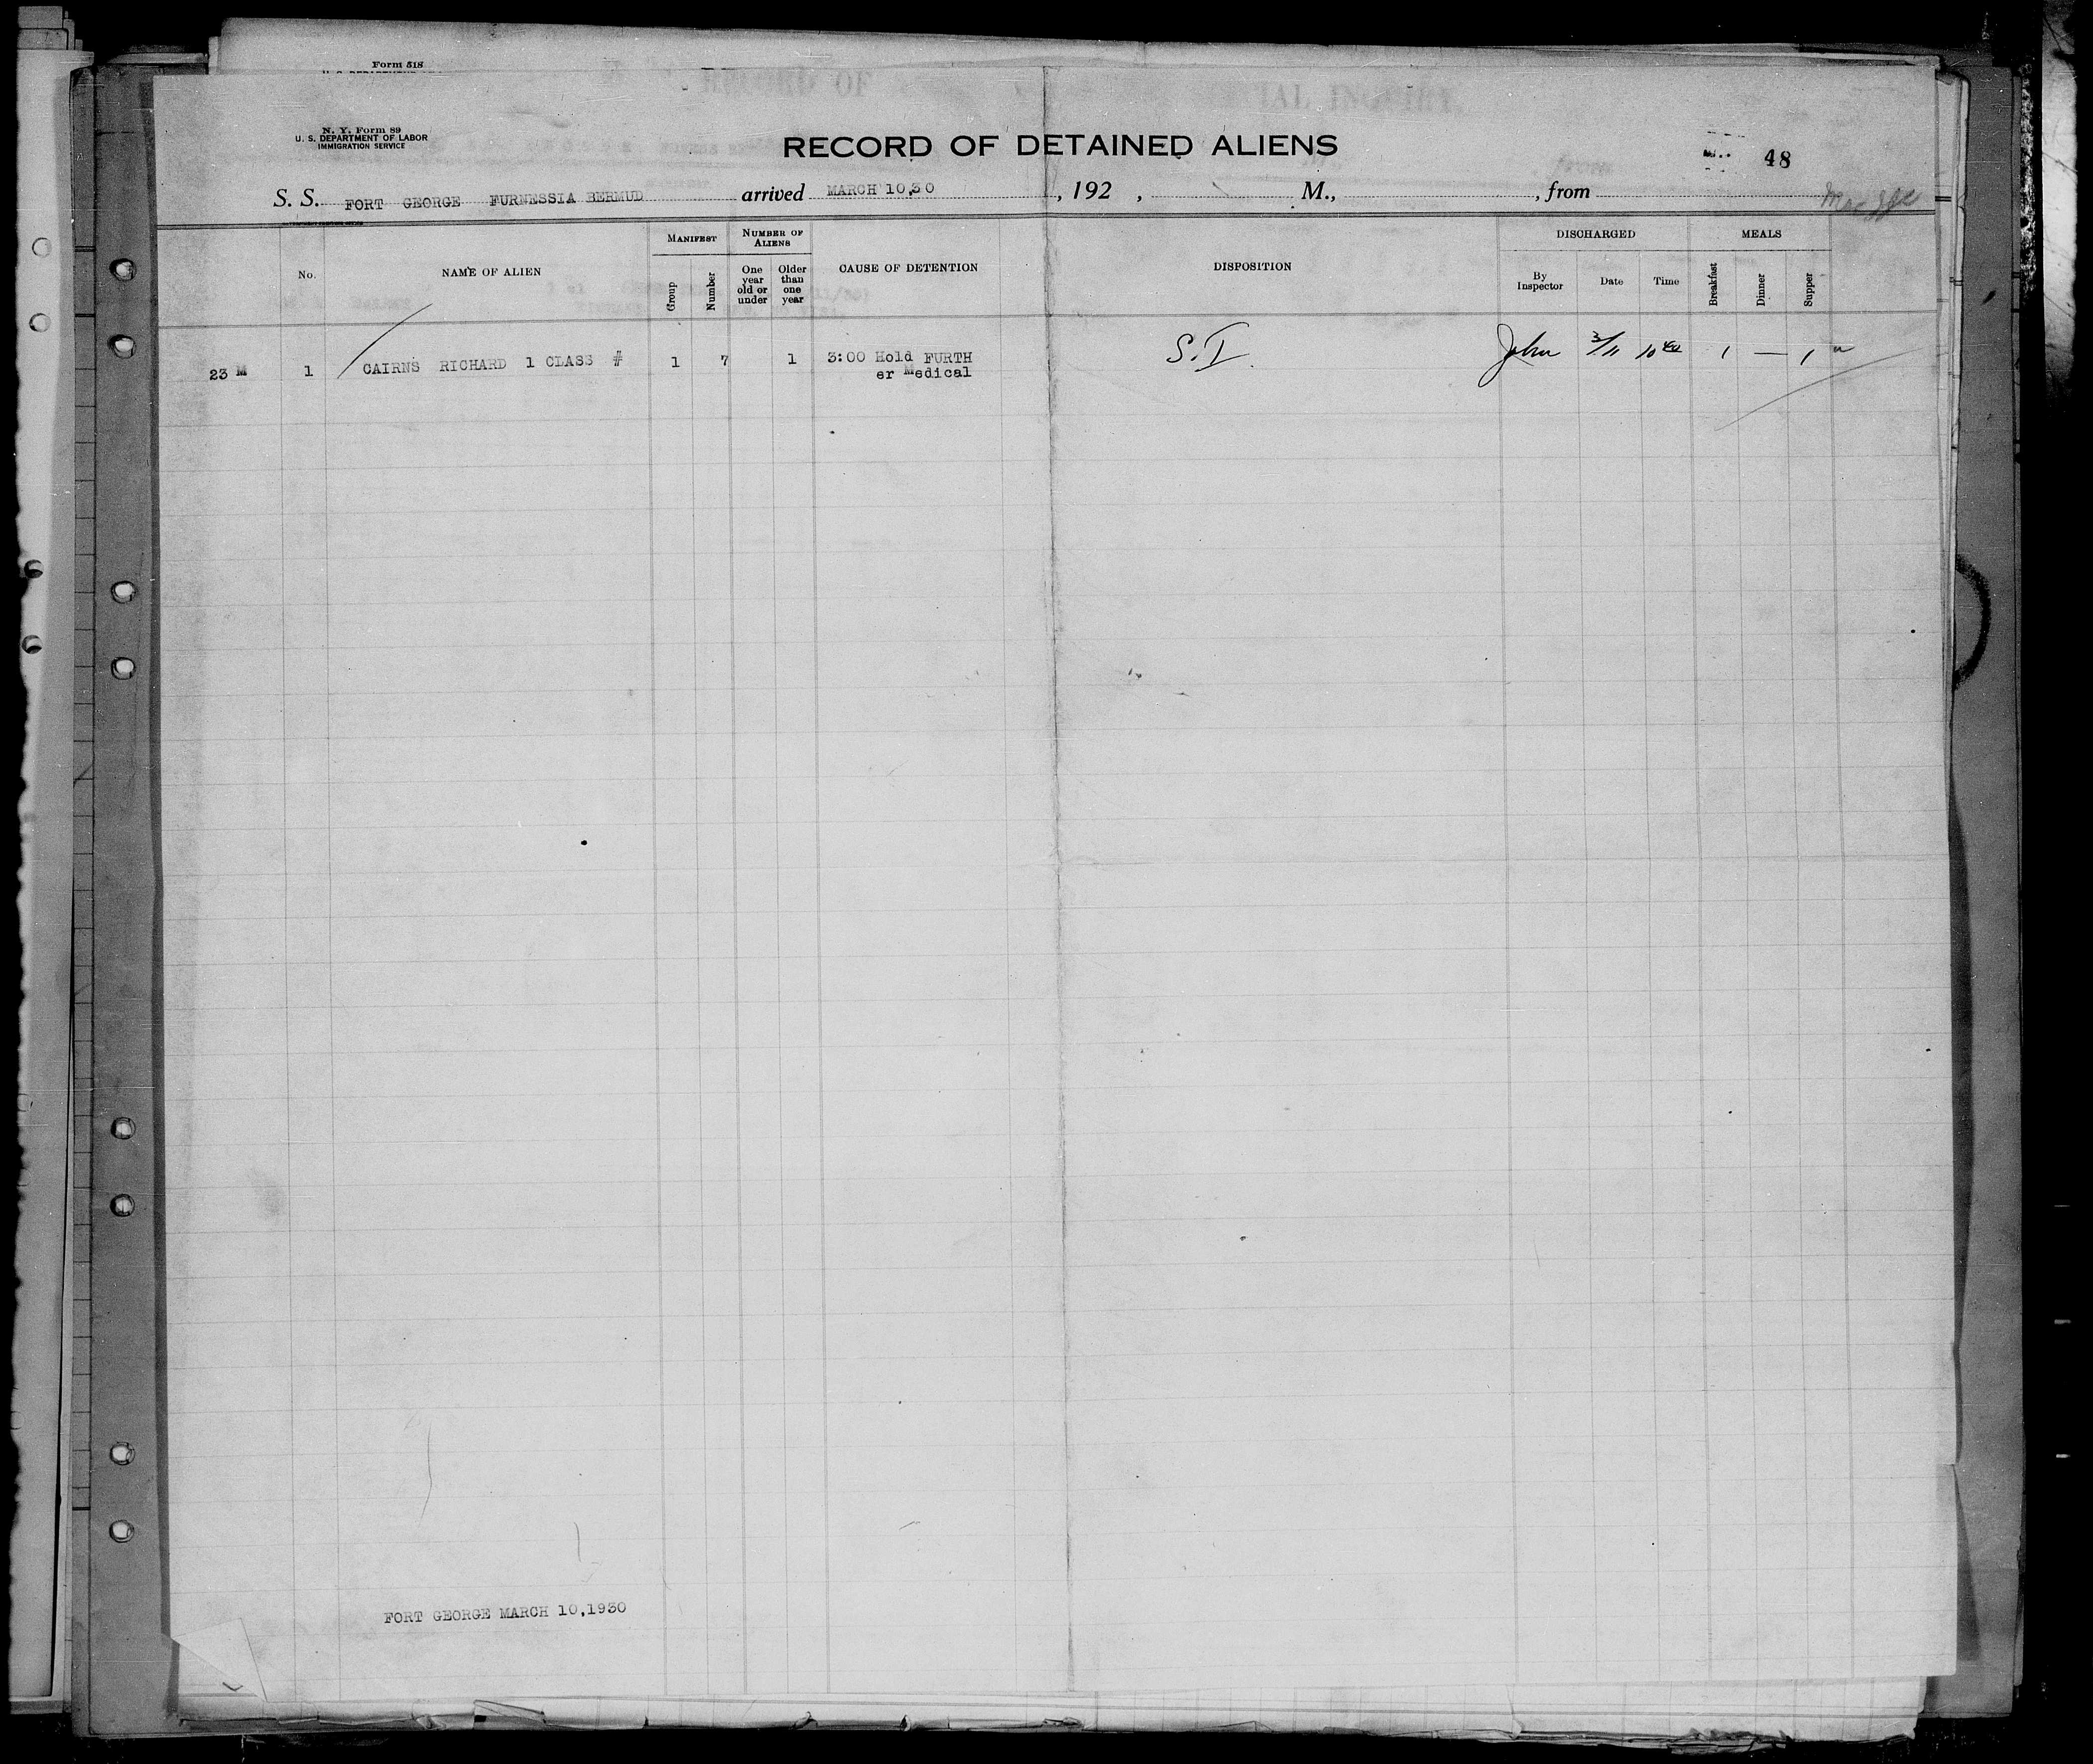 Form 518
RECORD OF
IAL INQUIRY.
N. Y. Form 89
U. S. DEPARTMENT OF LABOR
IMMIGRATION SERVICE
RECORD OF DETAINED ALIENS
48
S. S. FORT GEORGE FURNESSIA BERMUD arrived MARCH 10,30 , 192 , M., , from
No.
NAME OF ALIEN
MANIFEST
Group
Number
NUMBER OF ALIENS
One year old or under
Older than one year
CAUSE OF DETENTION
DISPOSITION
DISCHARGED
By Inspector
Date
Time
MEALS
Breakfast
Dinner
Supper
23 M 1 CAIRNS RICHARD 1 CLASS # 1 7 1 3:00 Hold FURTH S.I. 3/11 1 — 1
er Medical
FORT GEORGE MARCH 10,1930